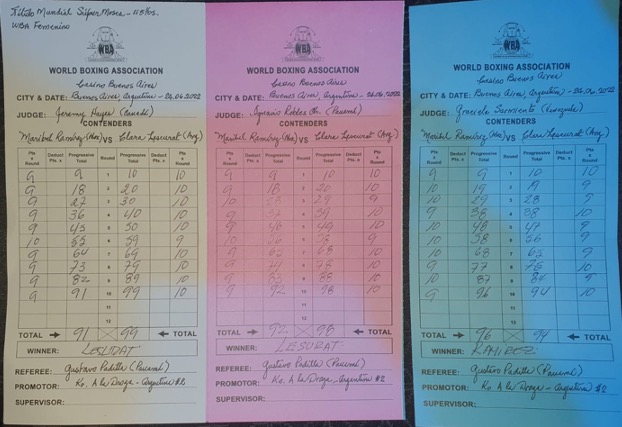 Título Mundial Súper Mosca - 115 lbs.
WBA Femenino
WBA
WORLD BOXING ASSOCIATION
Casino Buenos Aires
CITY & DATE: Buenos Aires, Argentina - 24.06.2022
JUDGE: Jeremy Hayes (Canadá)
CONTENDERS
Maribel Ramírez (Mex) VS Clara Lescurat (Arg)
Pts x Round Deduct Pts. x Progressive Total Round Progressive Total Deduct Pts. x Pts x Round
9 9 1 10 10
9 18 2 20 10
9 27 3 30 10
9 36 4 40 10
9 45 5 50 10
10 55 6 59 9
9 64 7 69 10
9 73 8 79 10
9 82 9 89 10
9 91 10 99 10
11
12
TOTAL → 91 99 ← TOTAL
WINNER: LESCURAT
REFEREE: Gustavo Padilla (Panamá)
PROMOTOR: Ko. A la Droga - Argentina #2
SUPERVISOR:
WBA
WORLD BOXING ASSOCIATION
Casino Buenos Aires
CITY & DATE: Buenos Aires, Argentina - 24.06.2022
JUDGE: Ignacio Robles (Panamá)
CONTENDERS
Maribel Ramírez (Mex) VS Clara Lescurat (Arg)
Pts x Round Deduct Pts. x Progressive Total Round Progressive Total Deduct Pts. x Pts x Round
9 9 1 10 10
9 18 2 20 10
10 28 3 29 9
9 37 4 39 10
9 46 5 49 10
10 56 6 58 9
9 65 7 68 10
9 74 8 78 10
9 83 9 88 10
9 92 10 98 10
11
12
TOTAL → 92 98 ← TOTAL
WINNER: LESCURAT
REFEREE: Gustavo Padilla (Panamá)
PROMOTOR: Ko. A la Droga - Argentina #2
SUPERVISOR:
WBA
WORLD BOXING ASSOCIATION
Casino Buenos Aires
CITY & DATE: Buenos Aires, Argentina - 24.06.2022
JUDGE: Graciela Sarmiento (Venezuela)
CONTENDERS
Maribel Ramírez (Mex) VS Clara Lescurat (Arg)
Pts x Round Deduct Pts. x Progressive Total Round Progressive Total Deduct Pts. x Pts x Round
9 9 1 10 10
10 19 2 19 9
10 29 3 28 9
9 38 4 38 10
10 48 5 47 9
10 58 6 56 9
10 68 7 65 9
9 77 8 75 10
10 87 9 84 9
9 96 10 94 10
11
12
TOTAL → 96 94 ← TOTAL
WINNER: RAMIREZ
REFEREE: Gustavo Padilla (Panamá)
PROMOTOR: Ko. A la Droga - Argentina #2
SUPERVISOR: